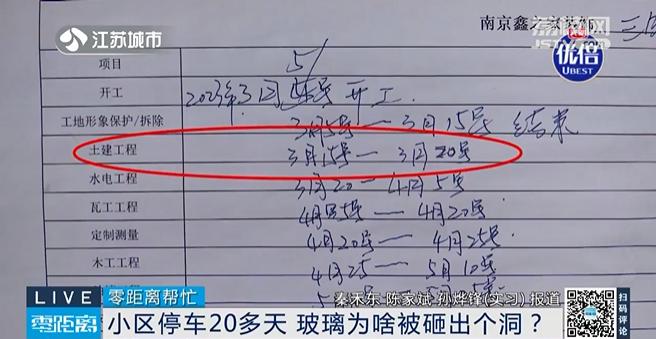 江苏城市
南京鑫之家装饰
荔枝网
JSTV.COM
优倍
UBEST
项目
开工 2023年3月 开工.
工地形象保护/拆除 3月5号—3月15号 结束
土建工程 3月15号—3月20号
水电工程 3月20—4月5号
瓦工工程 4月5号—4月20号
定制测量 4月20号—4月25号
木工工程 4月25—5月10号
LIVE 零距离帮忙
秦未东 陈家斌 孙烨锋(实习) 报道
零距离
小区停车20多天 玻璃为啥被砸出个洞?
扫码评论